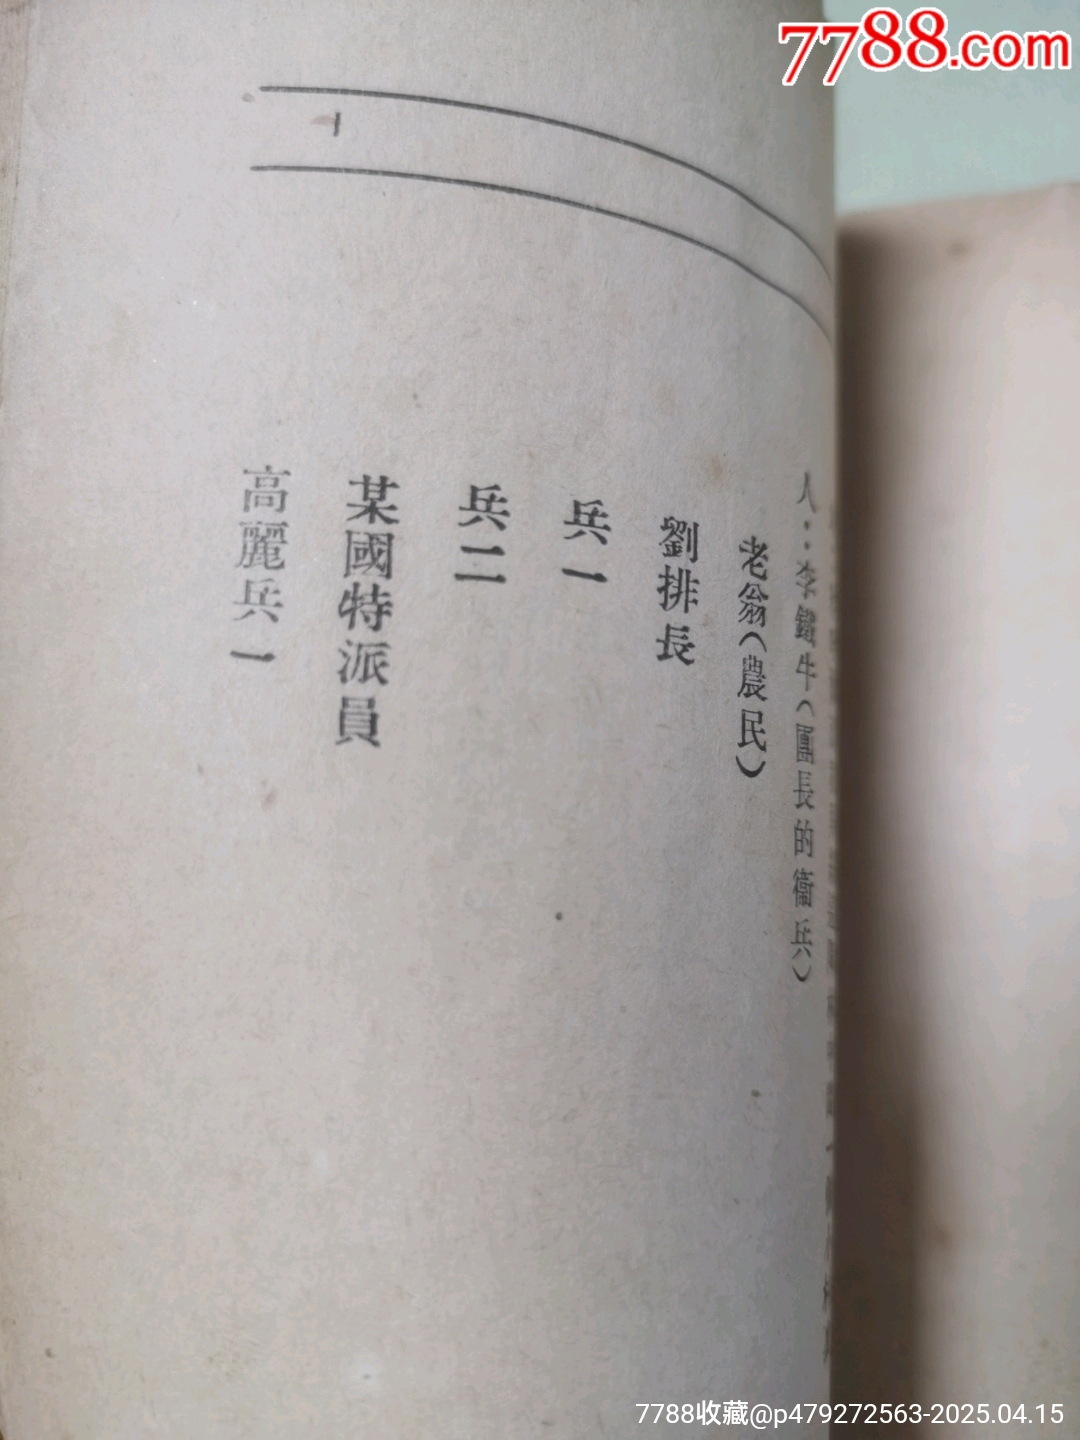 7788.com
人：李鐵牛（團長的衞兵）
老翁（農民）
劉排長
兵一
兵二
某國特派員
高麗兵一
7788收藏@p479272563-2025.04.15